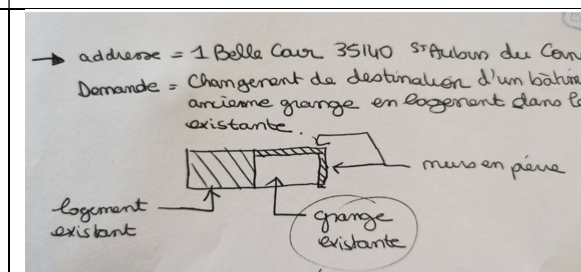 → addresse = 1 Belle Cour 35140 St Aubin du
Demande = Changement de destination d'un
ancienne grange en logement dans
existante.
murs en pierre
logement
existant
grange
existante